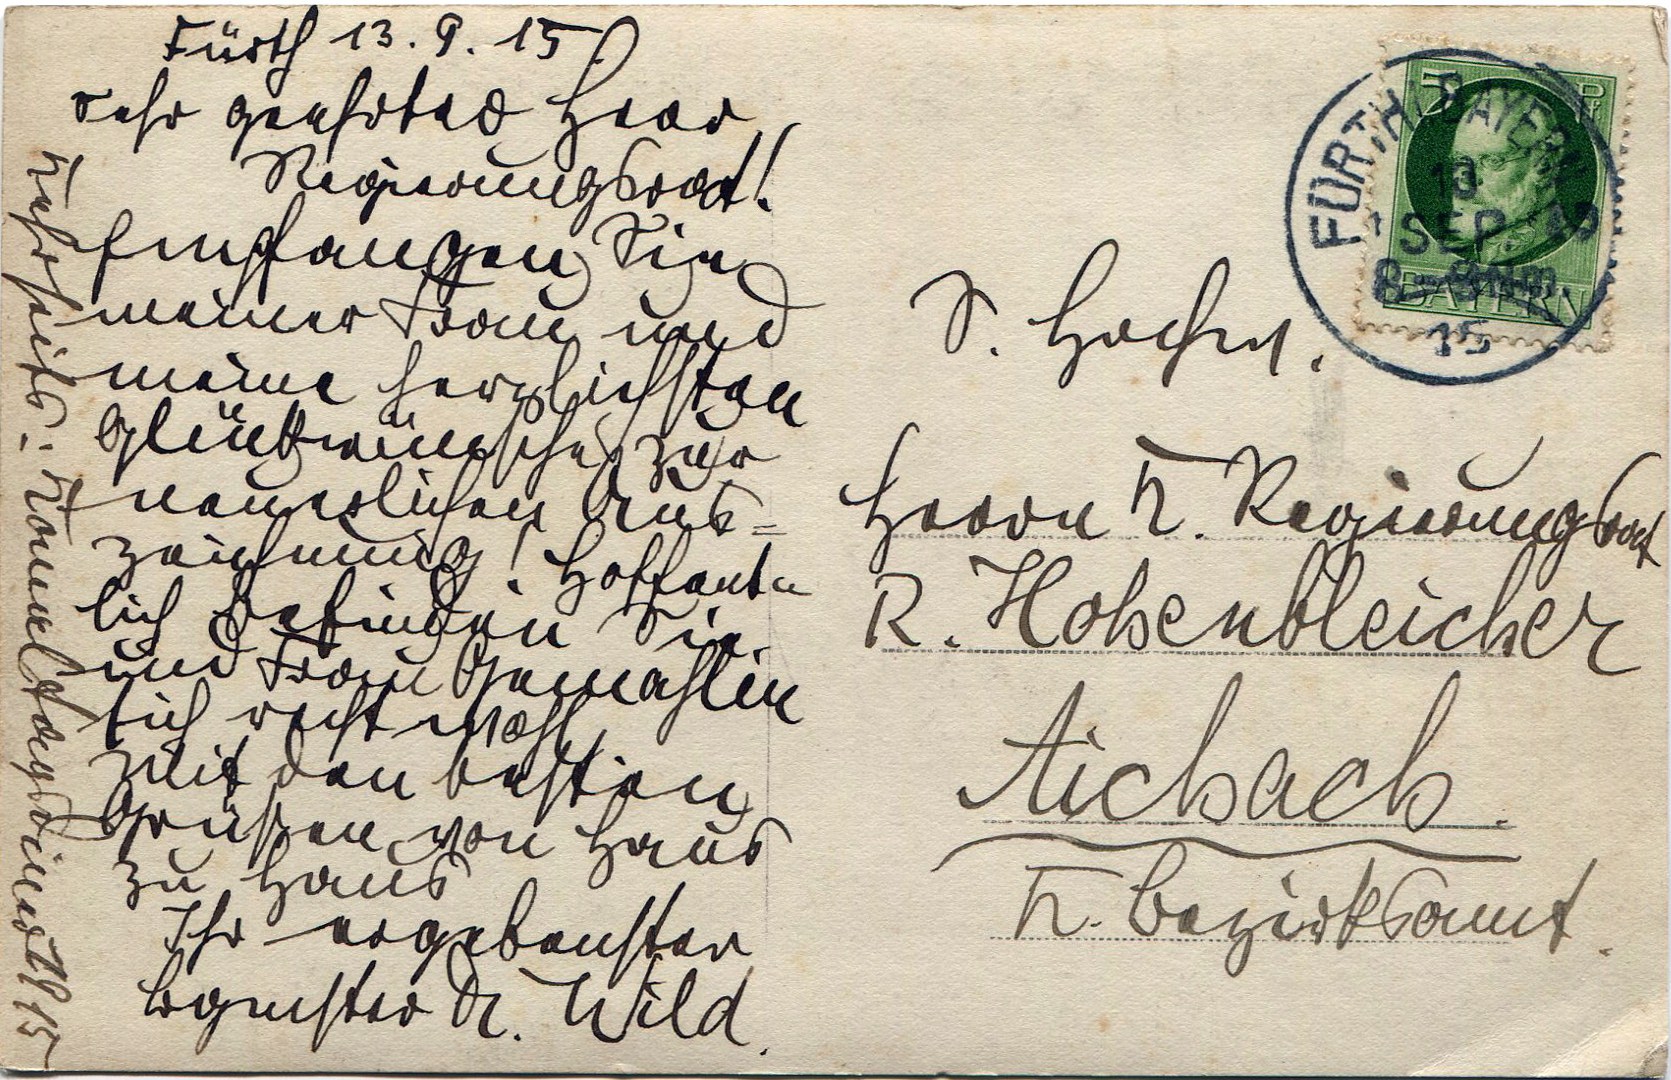 Fürth 13.9.15
Sehr geehrter Herr
Regierungsrat!
Empfangen Sie
meiner Frau und
meine herzlichsten
Glückwünsche zur
neuerlichen Aus=
zeichnung! Hoffent=
lich befinden Sie
und Frau Gemahlin
sich recht wohl
Mit den besten
Grüßen von Haus
zu Haus
Ihr ergebenster
Dr. Wild.
Kehrseits:
15
S. Hochw.
Herrn K. Regierungsrat
R. Hohenbleicher
Aichach.
K. Bezirksamt.
FÜRTH (BAYERN)
13
SEP.
8-9Nm.
15
BAYERN